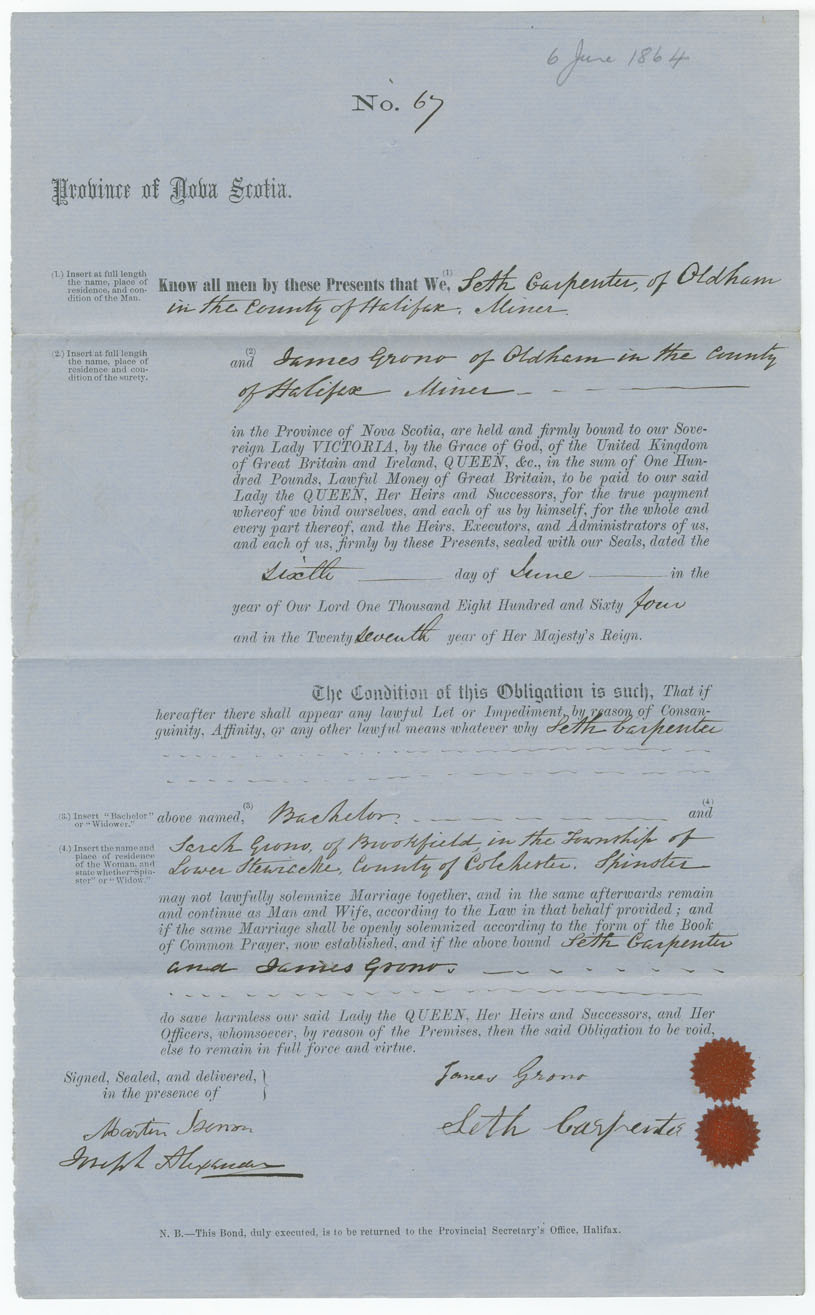 6 June 1864
No. 67
Province of Nova Scotia.
(1.) Insert at full length
the name, place of
residence, and con-
dition of the Man.
Know all men by these Presents that We, (1) Seth Carpenter, of Oldham
in the County of Halifax. Miner.
(2.) Insert at full length
the name, place of
residence and con-
dition of the surety.
and (2) James Grono of Oldham in the County
of Halifax Miner
in the Province of Nova Scotia, are held and firmly bound to our Sove-
reign Lady VICTORIA, by the Grace of God, of the United Kingdom
of Great Britain and Ireland, QUEEN, &c., in the sum of One Hun-
dred Pounds, Lawful Money of Great Britain, to be paid to our said
Lady the QUEEN, Her Heirs and Successors, for the true payment
whereof we bind ourselves, and each of us by himself, for the whole and
every part thereof, and the Heirs, Executors, and Administrators of us,
and each of us, firmly by these Presents, sealed with our Seals, dated the
sixth day of June in the
year of Our Lord One Thousand Eight Hundred and Sixty four
and in the Twenty seventh year of Her Majesty's Reign.
The Condition of this Obligation is such, That if
hereafter there shall appear any lawful Let or Impediment, by reason of Consan-
guinity, Affinity, or any other lawful means whatever why Seth Carpenter
(3.) Insert "Bachelor"
or "Widower."
above named, (3) Bachelor. (4) and
(4.) Insert the name and
place of residence
of the Woman, and
state whether "Spin-
ster" or "Widow."
Sarah Grono, of Brookfield, in the Township of
Lower Stewiacke, County of Colchester. Spinster
may not lawfully solemnize Marriage together, and in the same afterwards remain
and continue as Man and Wife, according to the Law in that behalf provided; and
if the same Marriage shall be openly solemnized according to the form of the Book
of Common Prayer, now established, and if the above bound Seth Carpenter
and James Grono.
do save harmless our said Lady the QUEEN, Her Heirs and Successors, and Her
Officers, whomsoever, by reason of the Premises, then the said Obligation to be void,
else to remain in full force and virtue.
Signed, Sealed, and delivered,
in the presence of
James Grono
Martin
Seth Carpenter
Joseph Alexander
N. B.—This Bond, duly executed, is to be returned to the Provincial Secretary's Office, Halifax.